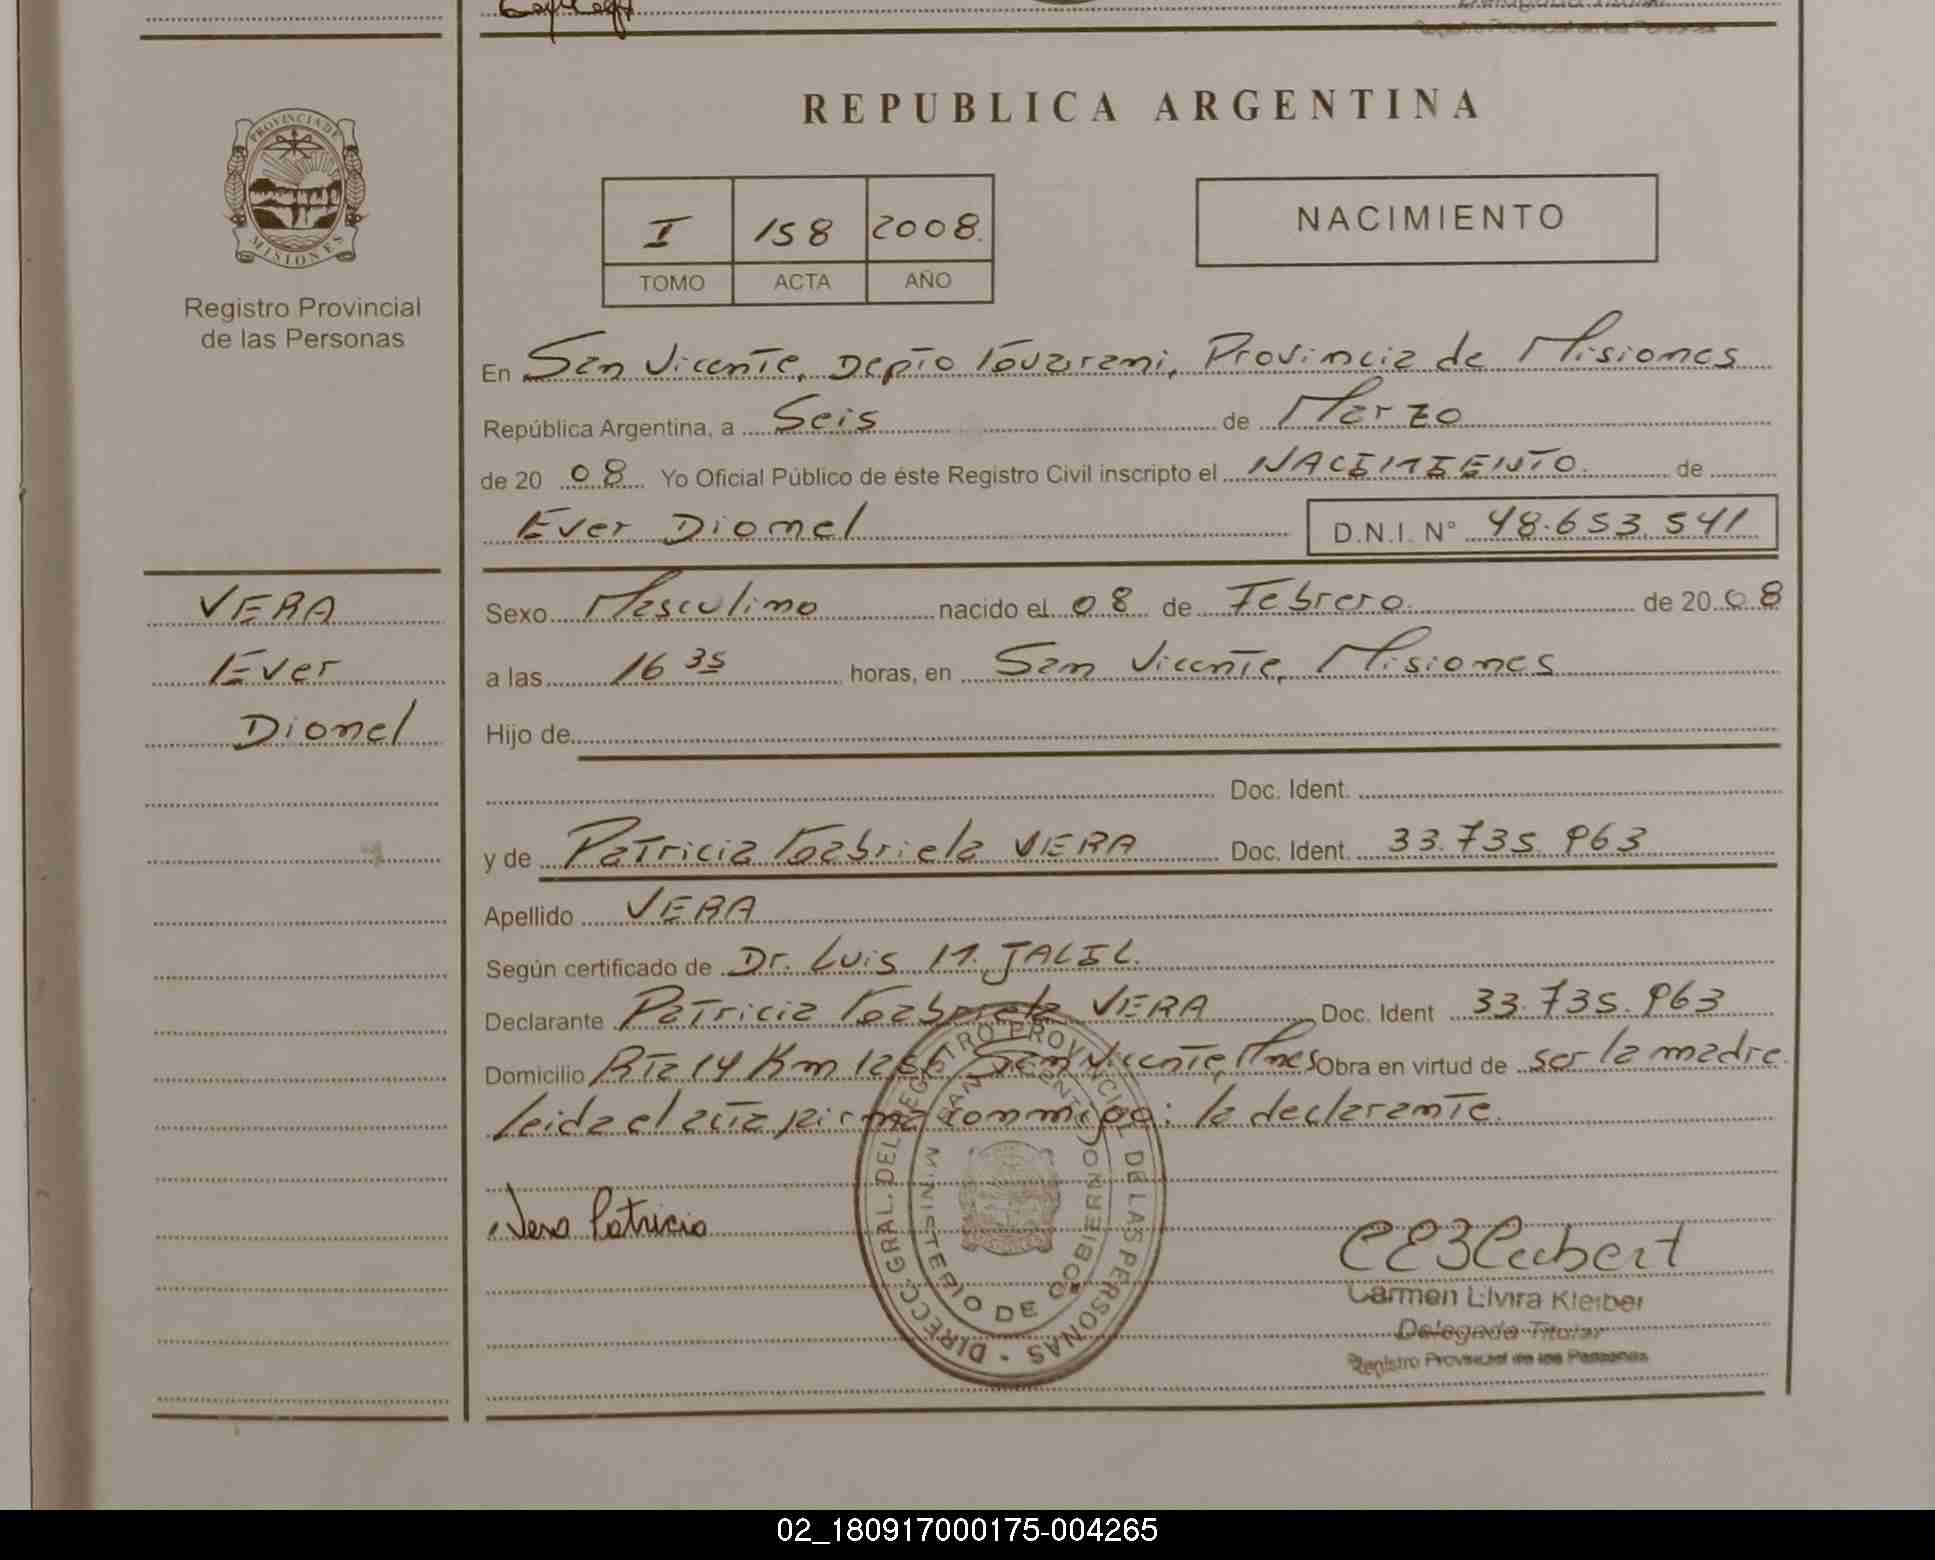 REPUBLICA ARGENTINA
PROVINCIA DE
MISIONES
Registro Provincial
de las Personas
I 158 2008.
TOMO ACTA AÑO
NACIMIENTO
En San Vicente, Depto Guarani, Provincia de Misiones
República Argentina, a Seis de Marzo
de 20 08 Yo Oficial Público de éste Registro Civil inscripto el NACIMIENTO. de
Ever Dionel D.N.I. N° 48.653.541
VERA
Ever
Dionel
Sexo Masculino nacido el 08 de Febrero. de 20 08
a las 16 35 horas, en San Vicente, Misiones
Hijo de
Doc. Ident.
y de Patricia Gabriela VERA Doc. Ident. 33.735.963
Apellido VERA
Según certificado de Dr. Luis M. JALIL.
Declarante Patricia Gabriela VERA Doc. Ident 33.735.963
Domicilio Rta 14 Km 1266 San Vicente, Mnes Obra en virtud de ser la madre.
Leida el acta firma conmigo: la declarante.
Vera Patricia
DIRECC. GRAL. DEL REGISTRO PROVINCIAL DE LAS PERSONAS
SAN VICENTE
MINISTERIO DE GOBIERNO
Carmen Elvira Kleiber
Delegada Titular
Registro Provincial de las Personas
02_180917000175-004265